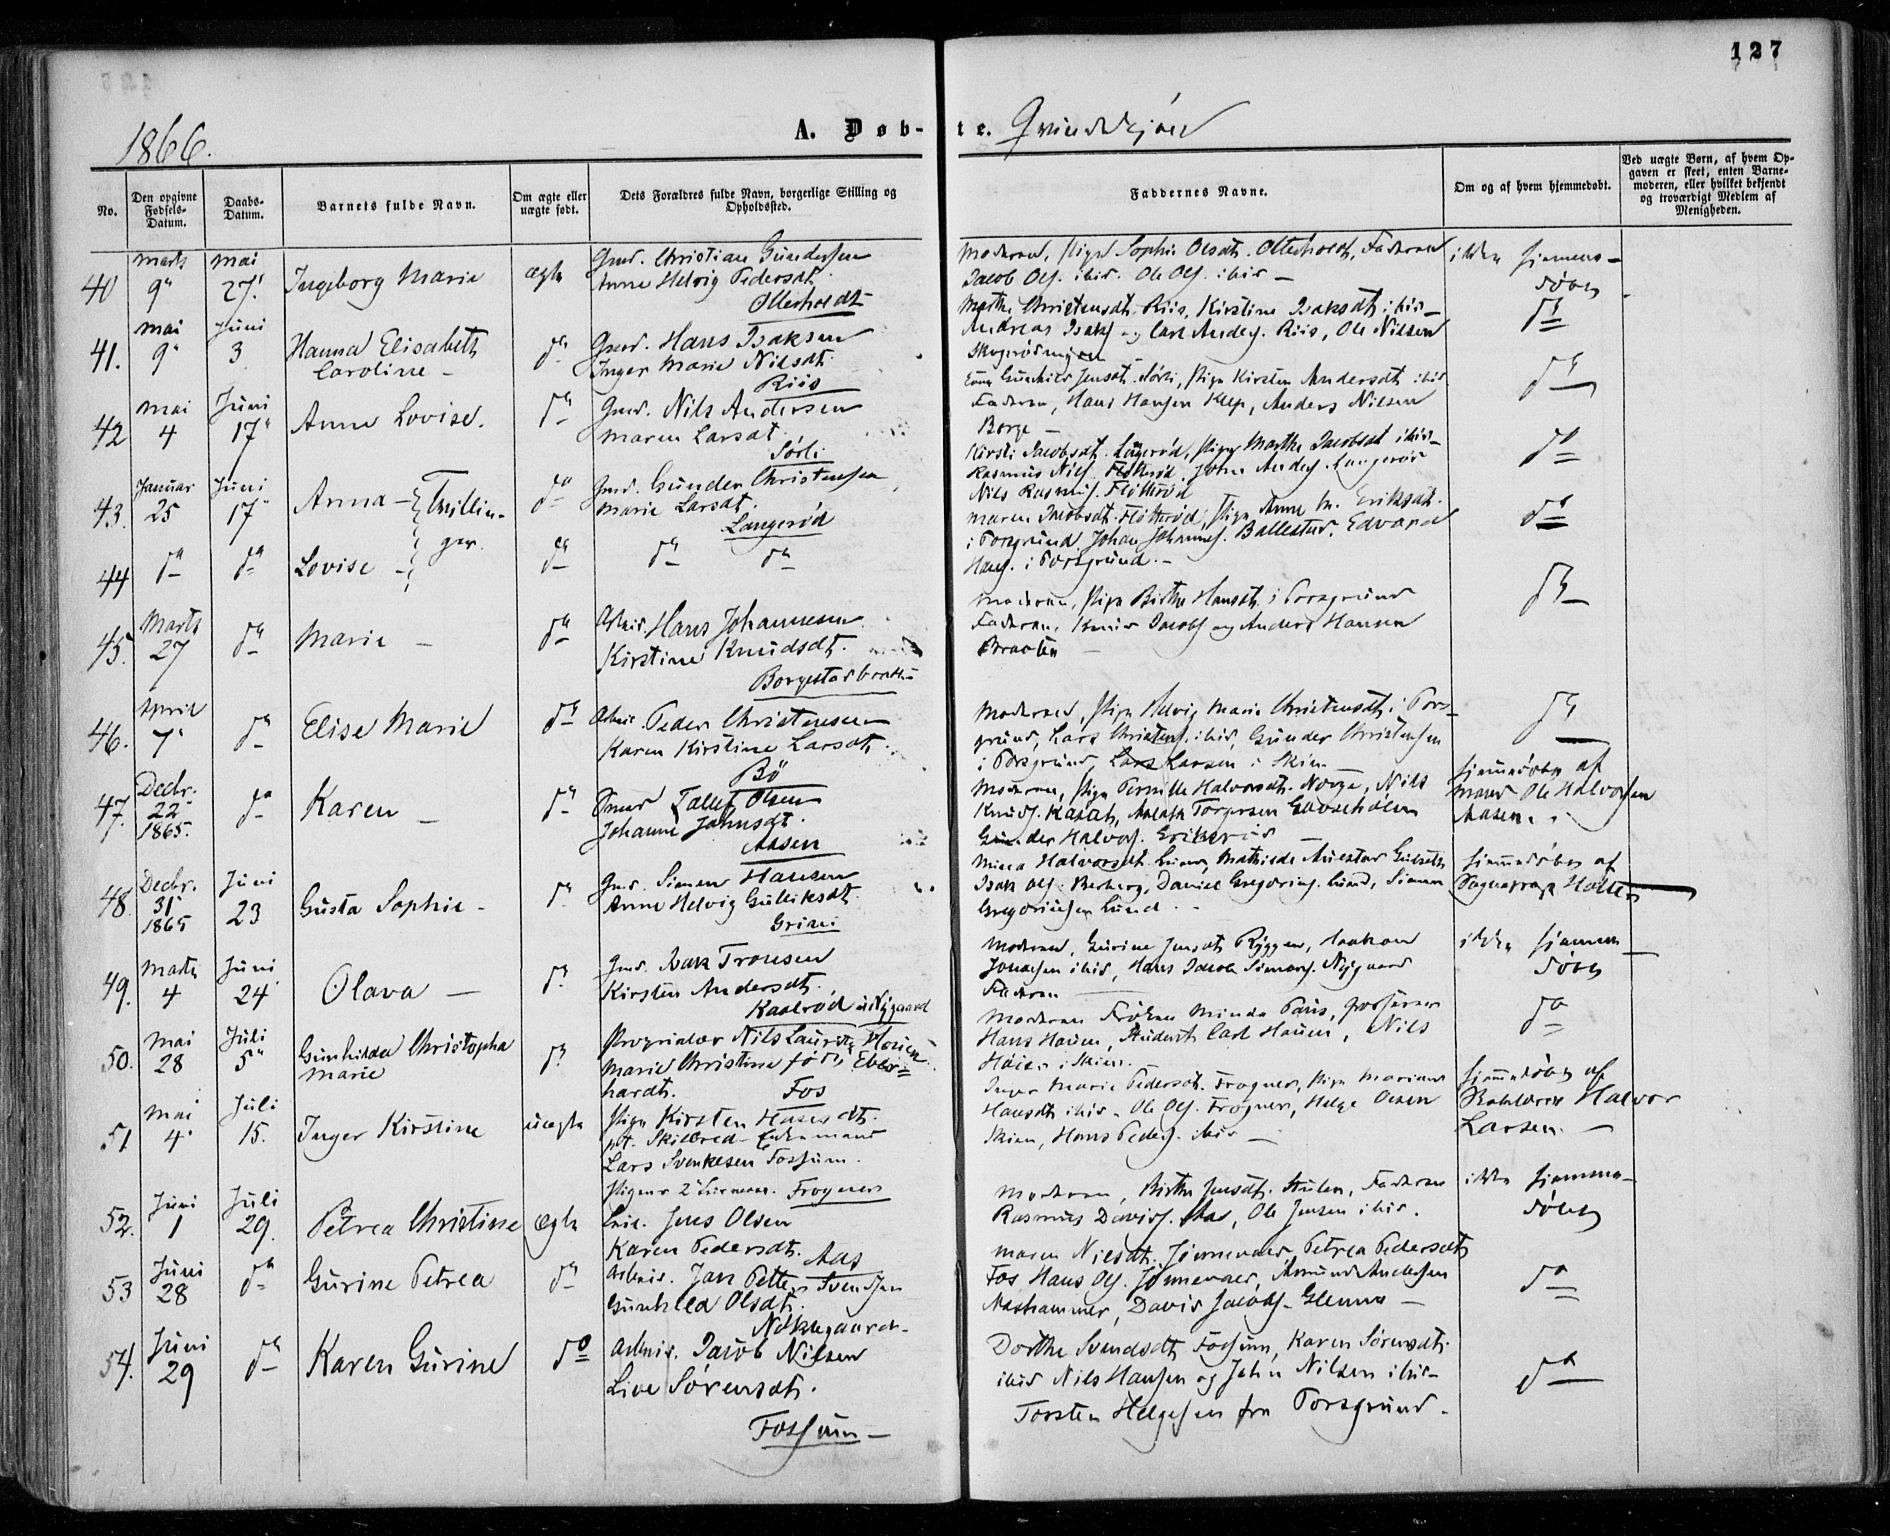 127
1866.
A. Døb-te. Qvindekjøn
No.
Den opgivne Fødsels-Datum.
Daabs-Datum.
Barnets fulde Navn.
Om ægte eller uægte født.
Dets Forældres fulde Navn, borgerlige Stilling og Opholdssted.
Faddernes Navne.
Om og af hvem hjemmedøbt.
Ved uægte Børn, af hvem Op-
gaven er skeet, enten Barne-
moderen, eller hvilket bekjendt
og troværdigt Medlem af
Menigheden.
40 Marts 9" Mai 27. Ingeborg Marie ægte
Gmd. Christian Gundersen
Anne Helvig Pedersdt.
Otterholdt
Moderen, Pige Sophie Olsdt. Otterholdt, Faderen
Jacob Ols. ibid. Ole Ols. ibid
ikke hjemme-
døbt
41. Mai 9" Juni 3 Hanna Elisabeth
Caroline do
Gmd. Hans Isaksen
Inger Marie Nilsdt.
Riis
Marthe Christensdt. Riis, Kirstine Isaksdt ibid
Andreas Isaks. og Carl Anders. Riis, Ole Nilsen
do
42 Mai 4 Juni 17" Anne Lovise. do
Gmd. Nils Andersen
Maren Larsdt.
Sørli
Gunhild Jensdt. Sørli, Pige Kirsten Andersdt ibid
Faderen, Hans Hansen Klep, Anders Nilsen
Borge
do
43. Januar 25 Juni 17" Anna Tvillin-
ger. do
Gmd. Gunder Christensen
Marie Larsdt.
Langerød
Kirsti Jacobsdt. Langerød, Pige Marthe Jacobsdt ibid
Rasmus Nils. Flötterød, John Anders. Langerød
Nils Rasmus. Fløtterød
do
44 do do Lovise do do do
Maren Jacobsdt. Fløtterød, Pige Anne M. Eriksdt.
i Porsgrund. Johan Johannes. Ballestad, Edvard
Hans. i Porsgrund.
do
45. Marts 27 do Marie do
Arbeid. Hans Johannesen
Kirstine Knudsdt.
Borgestadbraaten
Moderen, Pige Birthe Hansdt. i Porsgrund
Faderen, Knud Jacobs og Anders Hansen
Braaten
do
46. April 7" do Elise Marie do
Arbeid. Peder Christensen
Karen Kirstine Larsdt.
Bö
Moderen, Pige Helvig Marie Christensdt. i Pors-
grund, Lars Christens. ibid, Gunder Christensen
i Porsgrund, Lars Larsen i Skien
do
47. Decbr. 22" 1865. do Karen do
Smed Tallef Olsen
Johanne Johnsdt.
Aasen
Moderen, Pige Pernille Halvorsdt. Norge, Nils
Knuds. Kasat, Torgersen Gravseholm
Gunder Halvors. Erikerød
hjemmedøbt af
Mand Ole Halvorsen
Aasen.
48. Decbr. 31 1865 Juni 23 Gusta Sophie do
Gmd. Simen Hansen
Anne Helvig Gulliksdt.
Grini
Halvorsdt. Lund, Mathilde
Isak Ols. Berberg, Daniel Gregorius. Lund, Simen
Gregoriusen Lund
hjemmedøbt af
Sogneprest Holter
49. Marts 4 Juni 24 Olava do
Gmd. Isak Tronsen
Kirsten Andersdt.
Kaalrød u Nygaard
Moderen, Gurine Jensdt. Ryggen, Haakon
Jonassen ibid, Hans Jacob Simons. Nygaard
Faderen
ikke hjemme-
døbt
50. Mai 28 Juli 5" Gunhilda Christopha
Marie do
Proprietær Nils Lauritz Houen
Marie Christine født Eber-
hardt.
Fos
Moderen Frøken Minda Paus, Grosserer
Hans Houen, Student Carl Houen, Nils
Høier i Skien.
do
51 Mai 4" Juli 15. Inger Kirstine uægte
Pige Kirsten Hansdt.
pt. Skilbred - Enkemand
Lars Svenkesen Fossum.
Pigens 2'
Frogner
Inger Marie Pedersdt. Frogner, Pige Mariane
Hansdt ibid. Ole Ols. Frogner, Helge Olsen
Skien, Hans Peders. ibid
hjemmedøbt af
Skolelærer Halvor
Larsen.
52. Juni 1 Juli 29. Petrea Christine ægte
Jens Olsen
Karen Pedersdt.
Aas
Moderen, Birthe Jensdt. Hulen, Faderen
Rasmus Davids. Aas, Ole Jensen ibid.
ikke hjemme-
døbt
53 Juni 28 do Gurine Petrea do
Arbeid. Jan Petter Svendsen
Gunhild Olsdt.
Nøklegaard
Maren Nilsdt. Jønnevald, Petrea Pedersdt
Fos Hans Ols. Jønnevald, Amund Andersen
Nashammer, David Jacobs. Glenna
do
54. Juni 29 do Karen Gurine do
Arbeid. Jacob Nilsen
Live Sørensdt.
Fossum
Dorthe Svendsdt. Fossum, Karen Sørensdt.
ibid Nils Hansen og John Nilsen ibid
Torsten Helgesen fra Porsgrund.
do